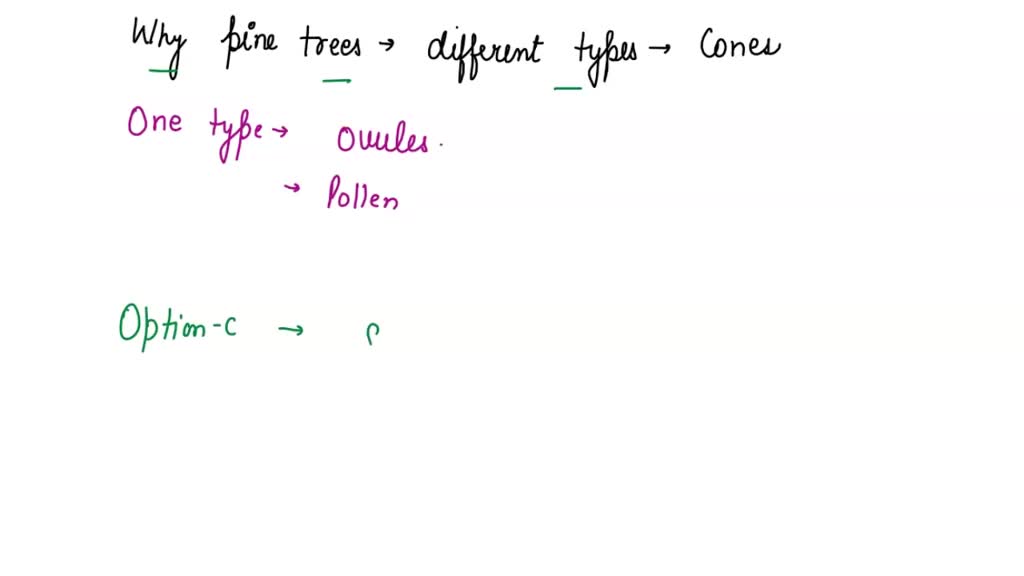 Why pine trees → different types → Cones
One type → Ovules.
→ Pollen
Option-c →